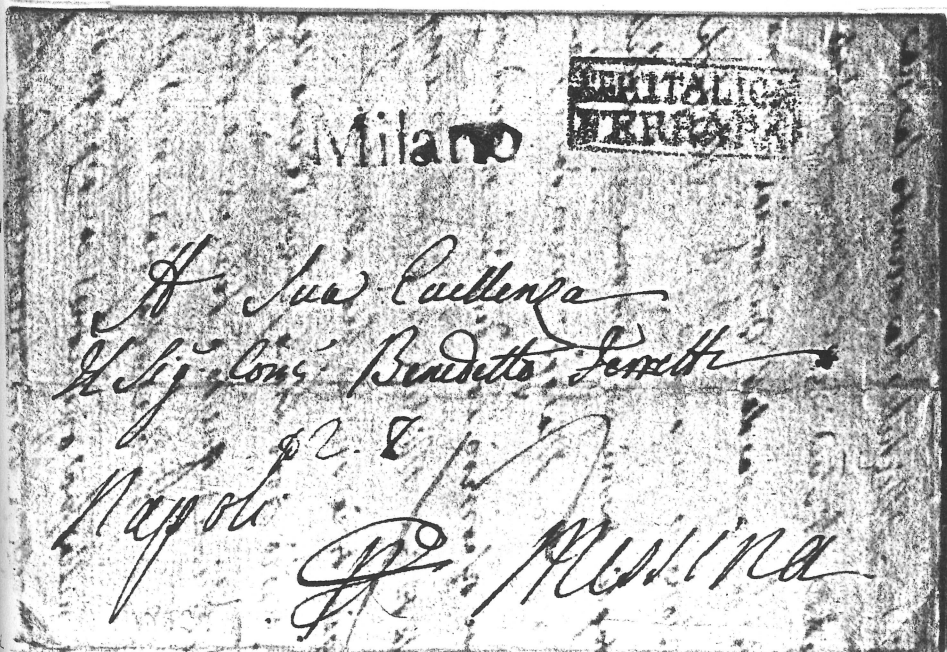 REP.ITALICA
FERRARA
Milano
A Sua Eccellenza
Il Sig.r Con.e Benedetto Ferretti
p 2. 8
Napoli
p Messina